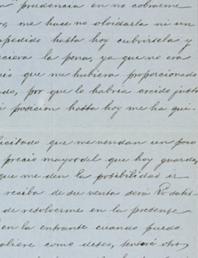 a prudencia en no cobrarme
, me hace no olvidarla ni un
apedido hasta hoy cubrírsela y
ciera la pena, ya que no era
is que me hubiera proporcionado
do, por que lo habria creido justo
i posicion hasta hoy me ha qui-
licitado que me vendan un poco
precio mayor del que hoy guarda,
que me den la posibilidad se
reciba de su venta será Vd satis-
de resolverme en la presente
en la entrante cuando pueda
obtiene como deseo, tendré otro